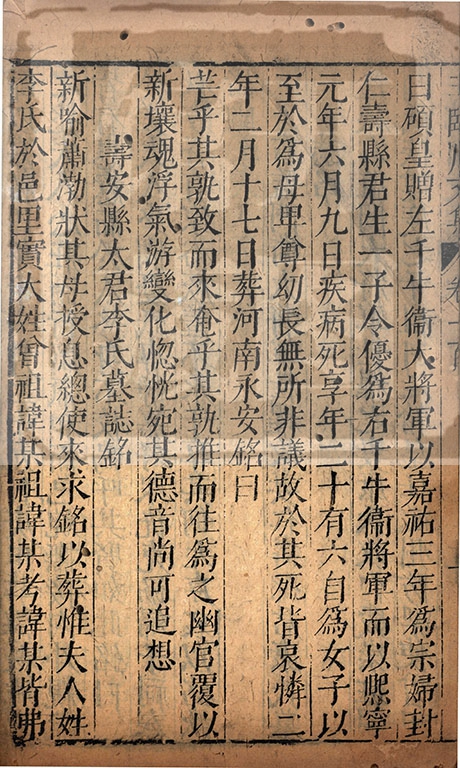 曰碩皇贈左千牛衞大將軍以嘉祐三年爲宗婦封
仁壽縣君生一子令優爲右千牛衞將軍而以熙寧
元年六月九日疾病死享年二十有六自爲女子以
至於爲母甲尊幼長無所非議故於其死皆哀憐二
年二月十七日葬河南永安銘曰
芒乎其孰致而來奄乎其孰推而往爲之幽官覆以
新壤魂浮氣游變化惚恍宛其德音尚可追想
壽安縣太君李氏墓誌銘
新喻蕭渤狀其母授息總使來求銘以葬惟夫人姓
李氏於邑里實大姓曾祖諱某祖諱某考諱某皆弗